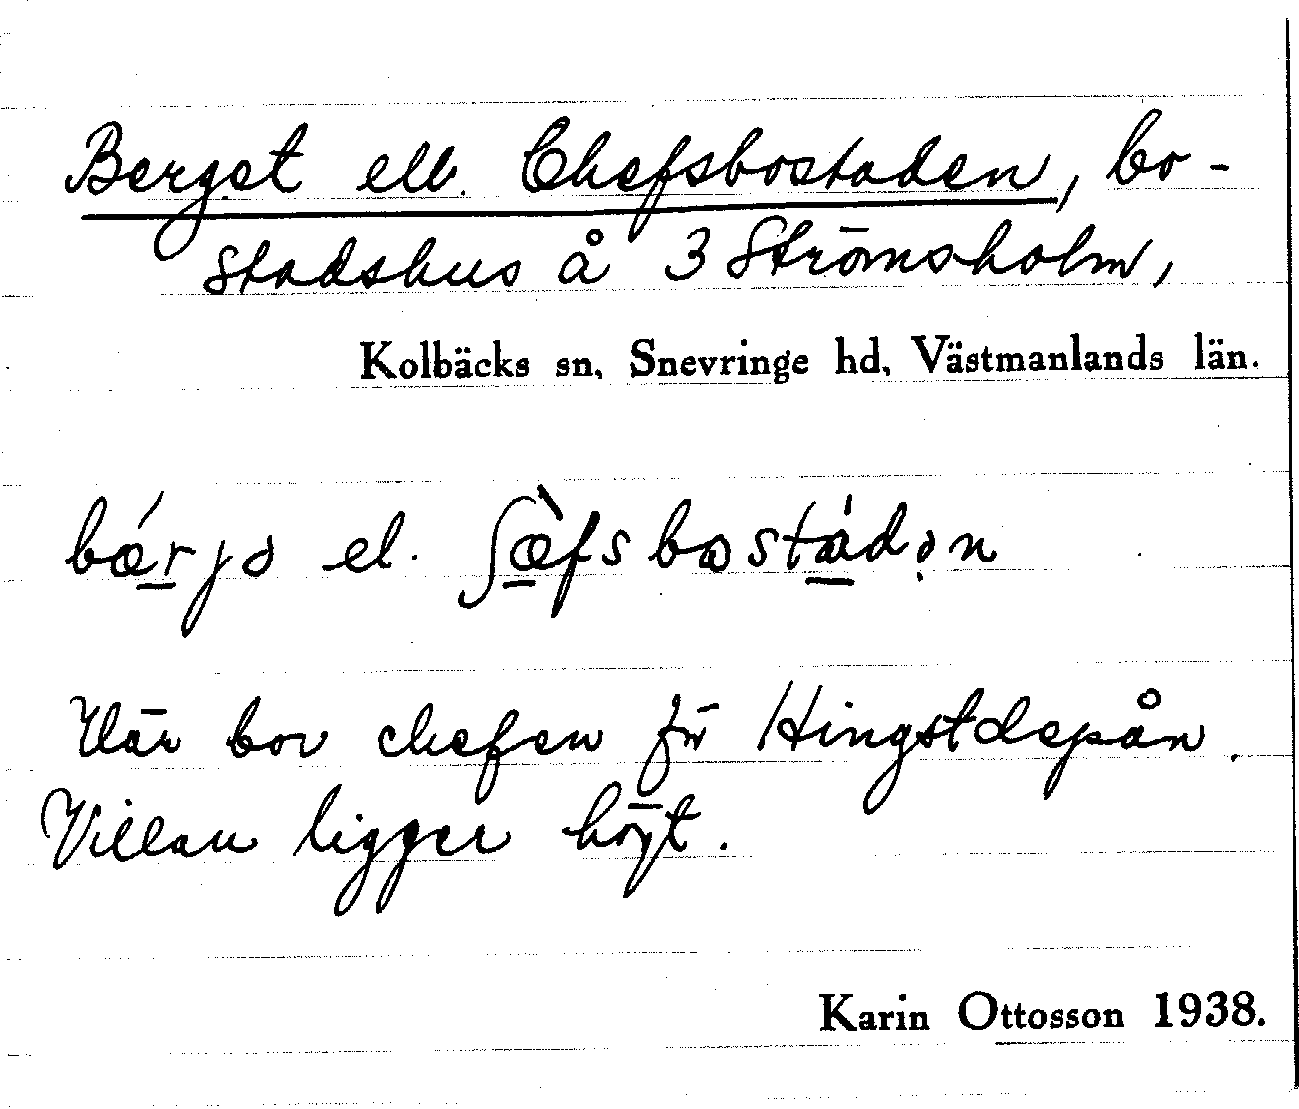 Berget ell. Chefsbostaden, bo-
stadshus å 3 Strömsholm,
Kolbäcks sn, Snevringe hd, Västmanlands län.
bǽrjə el. ʃæ̀fsbostádən
Här bor chefen för Hingstdepån.
Villan ligger högt.
Karin Ottosson 1938.